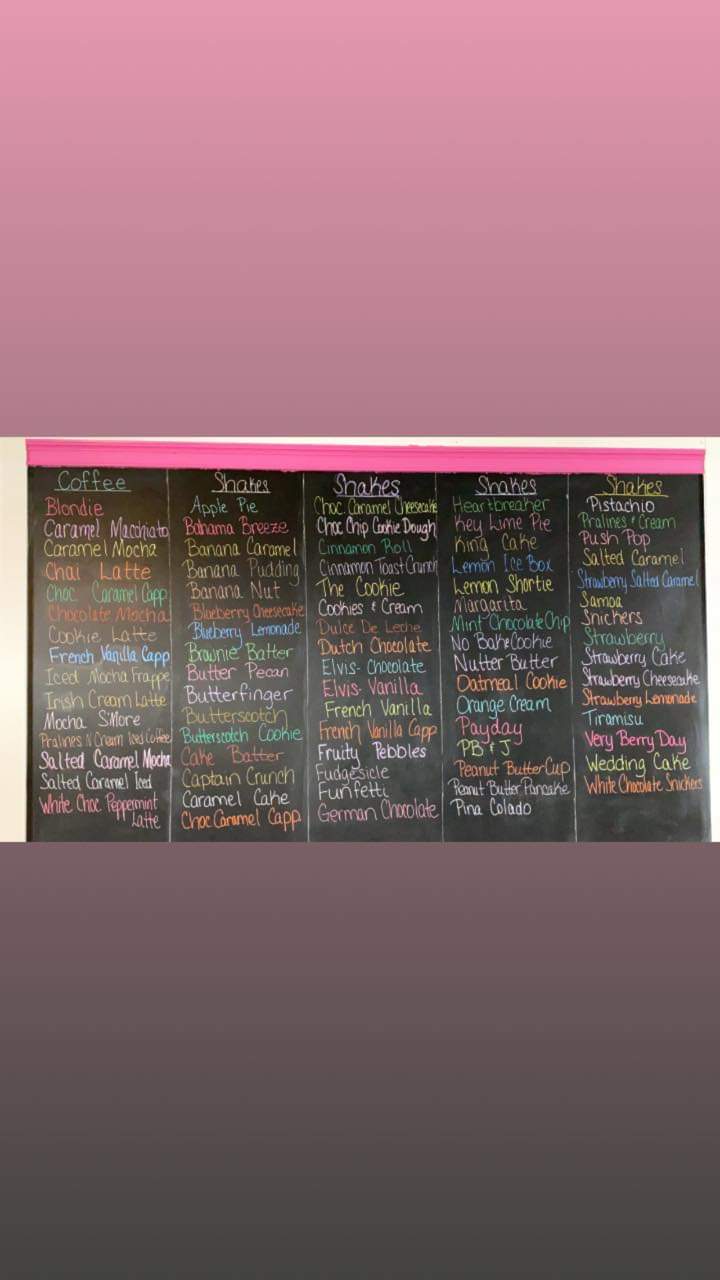 Coffee
Blondie
Caramel Macchiato
Caramel Mocha
Chai Latte
Choc Caramel Capp
Chocolate Mocha
Cookie Latte
French Vanilla Capp
Iced Mocha Frappe
Irish Cream Latte
Mocha S'More
Pralines N Cream Iced Coffee
Salted Caramel Mocha
Salted Caramel Iced
White Choc Peppermint
Latte
Shakes
Apple Pie
Bahama Breeze
Banana Caramel
Banana Pudding
Banana Nut
Blueberry Cheesecake
Blueberry Lemonade
Brownie Batter
Butter Pecan
Butterfinger
Butterscotch
Butterscotch Cookie
Cake Batter
Captain Crunch
Caramel Cake
Choc Caramel Capp
Shakes
Choc Caramel Cheesecake
Choc Chip Cookie Dough
Cinnamon Roll
Cinnamon Toast Crunch
The Cookie
Cookies & Cream
Dulce De Leche
Dutch Chocolate
Elvis- Chocolate
Elvis- Vanilla
French Vanilla
French Vanilla Capp
Fruity Pebbles
Fudgesicle
Funfetti
German Chocolate
Shakes
Heartbreaker
Key Lime Pie
King Cake
Lemon Ice Box
Lemon Shortie
Margarita
Mint Chocolate Chip
No Bake Cookie
Nutter Butter
Oatmeal Cookie
Orange Cream
Payday
PB & J
Peanut Butter Cup
Peanut Butter Pancake
Pina Colado
Shakes
Pistachio
Pralines & Cream
Push Pop
Salted Caramel
Strawberry Salted Caramel
Samoa
Snickers
Strawberry
Strawberry Cake
Strawberry Cheesecake
Strawberry Lemonade
Tiramisu
Very Berry Day
Wedding Cake
White Chocolate Snickers